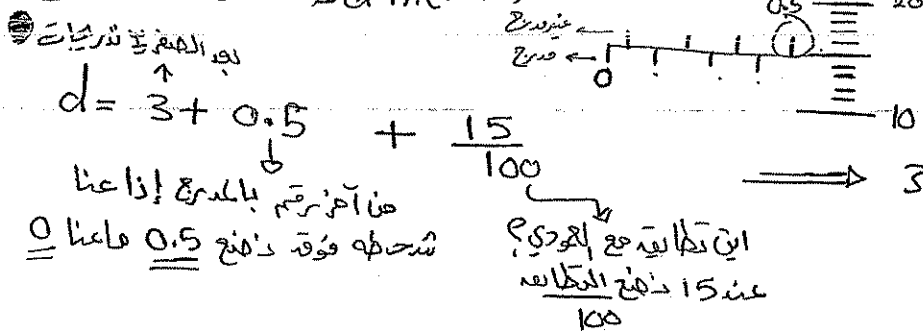 0.5 20
غير مدرج
مدرج
0
10
بعد الصفر 3 تدريجات
d = 3 + 0.5 + 15/100 ⟹ 3
من آخر رقم بالمدرج إذا عنا
شحطه فوق نضع 0.5 ماعنا 0
اين تطابق مع العمودي؟
عند 15 نضع التطابق
100